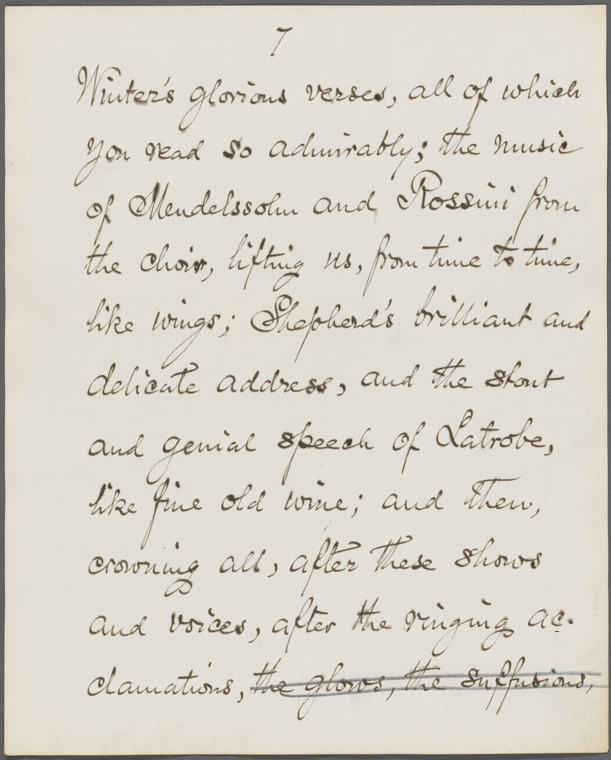 7
Winter's glorious verses, all of which
you read so admirably; the music
of Mendelssohn and Rossini from
the choir, lifting us, from time to time,
like wings; Shepherd's brilliant and
delicate address, and the stout
and genial speech of Latrobe,
like fine old wine; and then,
crowning all, after these shows
and voices, after the ringing ac-
clamations, the glows, the suffusions,